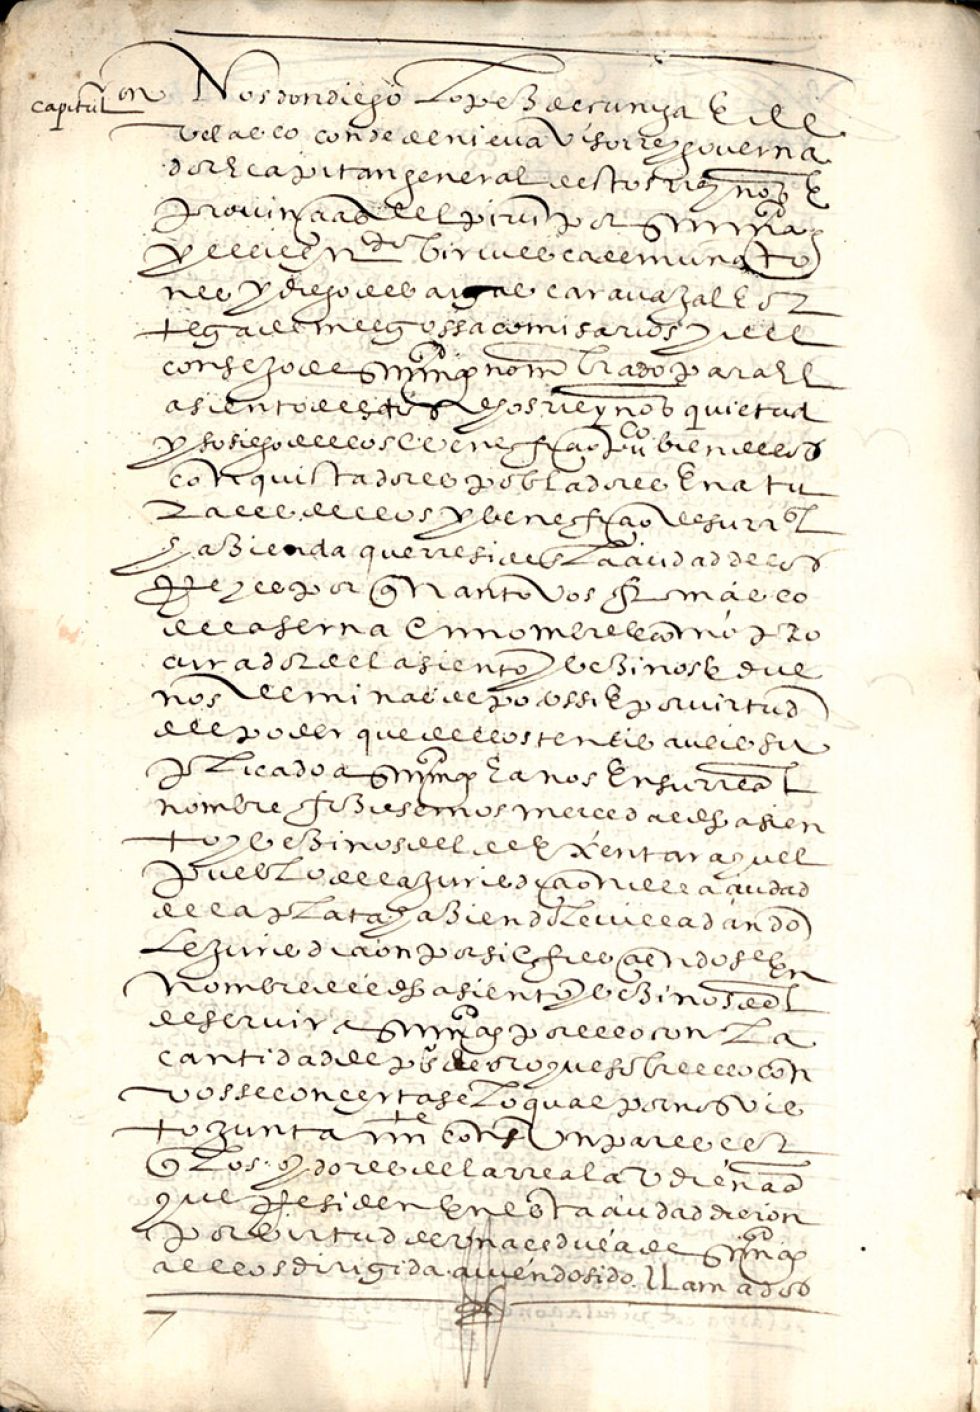 capitulon
Nos don diego Lopez de cuniga E de
velasco conde de nieva visorrey governa
dor E capitan general destos rreynos E
provincias del piru por Su mag
y el licen do birviesca de muñato
nes y diego de bargas caravazal E or
tega de melgossa comisarios y del
consezo de Su mag nombrado para El
asiento de rreynos quietud
y sosiego dellos E beneficio pu co bien de los
conquistadores pobladores E natu
rales dellos y beneficio de su rreal
hazienda que rresidesta ciudad de los
Reyes por quanto vos frz masco
de la serna En nombre E como pro
curador del asiento y bezinos E due
nos de minas de potossi E por virtud
del poder que dellos teneis aveis su
plicado a Su mag E a nos En su rreal
nombre fiziesemos merced a dho asien
to y bezinos del de Exentar aquel
pueblo de la zuridicion de la ciudad
de la plata haziendole villa dando
le zuridicion por si ofrescendose En
nombre del dho asiento y bezinos del
de servir a Su mag por ello con la
cantidad de ps de oro que sobrello con
vos se concertase lo qual por nos vis
to zuntamte con Un parescer
q los oydores del la rreal avdiencia
que Residen En esta ciudad dieron
por birtud de vna cedula de Su mag
a ellos dirigida aviendo sido llamados